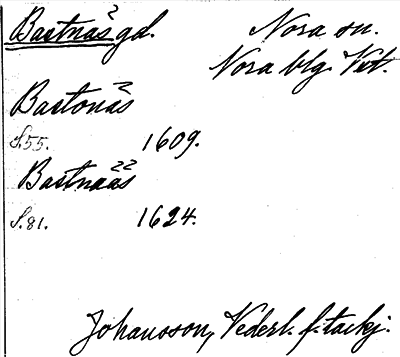 Bastnås gd. Nora sn.
Nora blg. Vst.
Bastonås
S. 55. 1609.
Bastnåås
S. 81. 1624.
Johansson, Vederl. f. tackj.